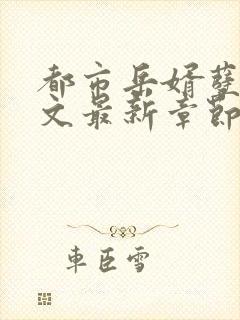 都市岳婿孽
文最新章節
車臣雪